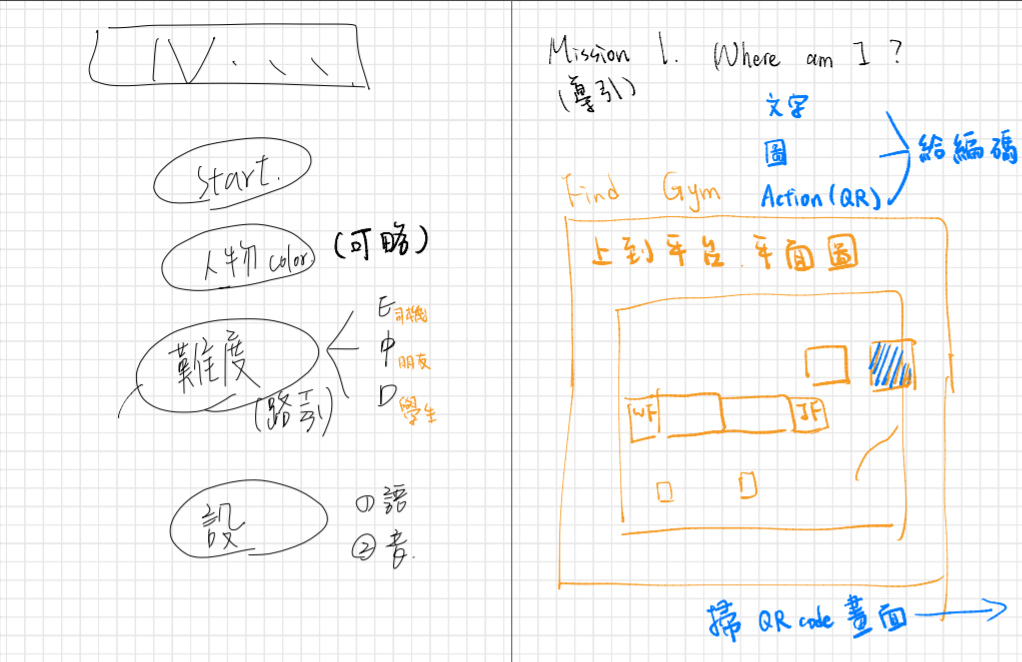 IV...
Start.
人物 color
(可略)
難度
(路引)
E 司機
中 朋友
D 學生
設
① 語
② 音.
Mission 1. Where am I ?
(導引)
文字
圖
Action (QR)
給編碼
Find Gym
上到平台.平面圖
WF
JF
掃 QR code 畫面